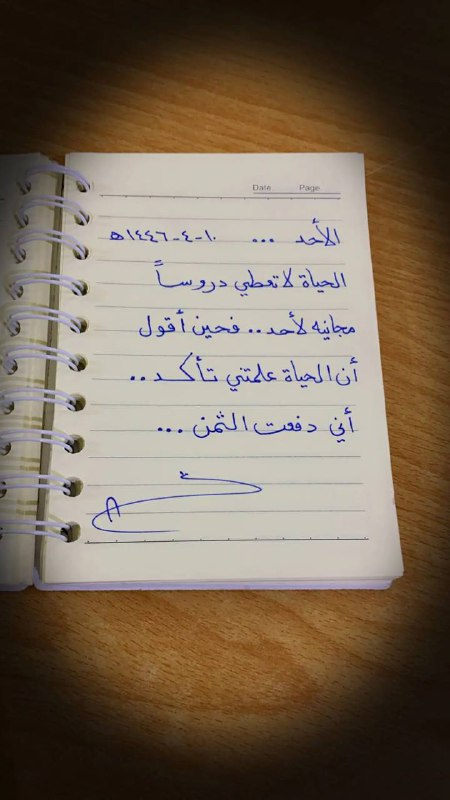 Date Page
الأحد ... ١٠-٤-١٤٤٦هـ
الحياة لا تعطي دروساً
مجانيه لأحد.. فحين أقول
أن الحياة علمتني تأكد..
أني دفعت الثمن ...